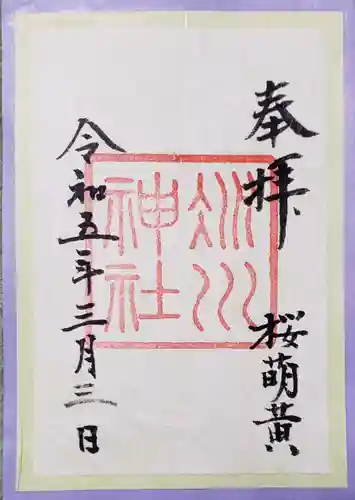 奉拝　桜萌黄
氷川
神社
令和五年三月三日